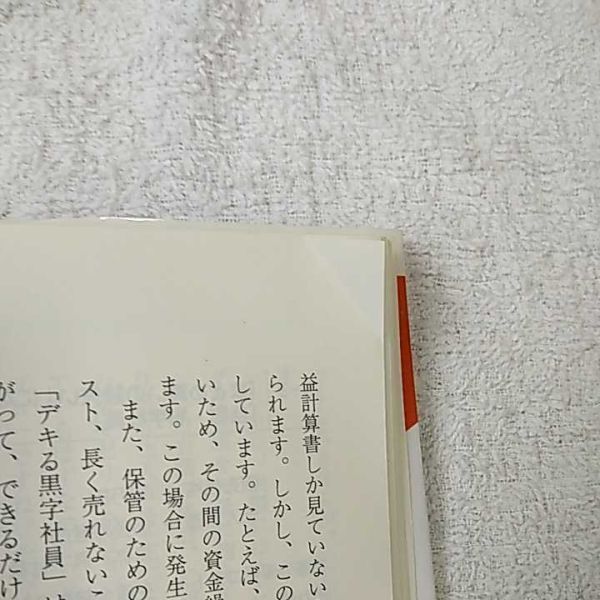 益計算書しか見ていない
られます。しかし、この
しています。たとえば、
いため、その間の資金繰
ます。この場合に発生
また、保管のための
スト、長く売れないこ
「デキる黒字社員」は
がって、できるだけ